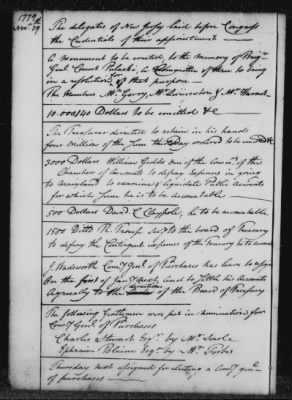 1779
Novr. 29th
The delegates of New Jersey laid before Congress
the Credentials of their appointment
A monument to be erected to the memory of Brigr.
Genl. Count Pulaski, a Committee of three to bring
in a resolution for that purpose
The Members Mr. Gerry, Mr. Livingston & Mr.
10.000140 Dollars to be emitted &c
The Treasurer directed to retain in his hands
four Million of the Sum this day ordered to be emitted
3000 Dollars William Govett one of the Comrs. of the
Chambers of Accounts to defray expences in going
to Maryland to examine & liquidate Public Accounts
for which Sum he is to be accountable
500 Dollars David C. Claypole, he to be accountable
1500 Ditto R. Troup Secy. to the board of Treasury
to defray the Contingent expences of the Treasury he to
J. Wadsworth Comy. Genl. of Purchases has leave to resign
On the first of Jany. next, and to settle his Accounts
Agreeably to the direction of the Board of Treasury
The following Gentlemen were put in nomination for
Comy. Genl. of Purchases
Charles Stewart Esqr. by Mr. Searle
Ephraim Blaine Esqr. by Mr. Forbes
Thursday next assigned for electing a Comy. Genl.
of purchases